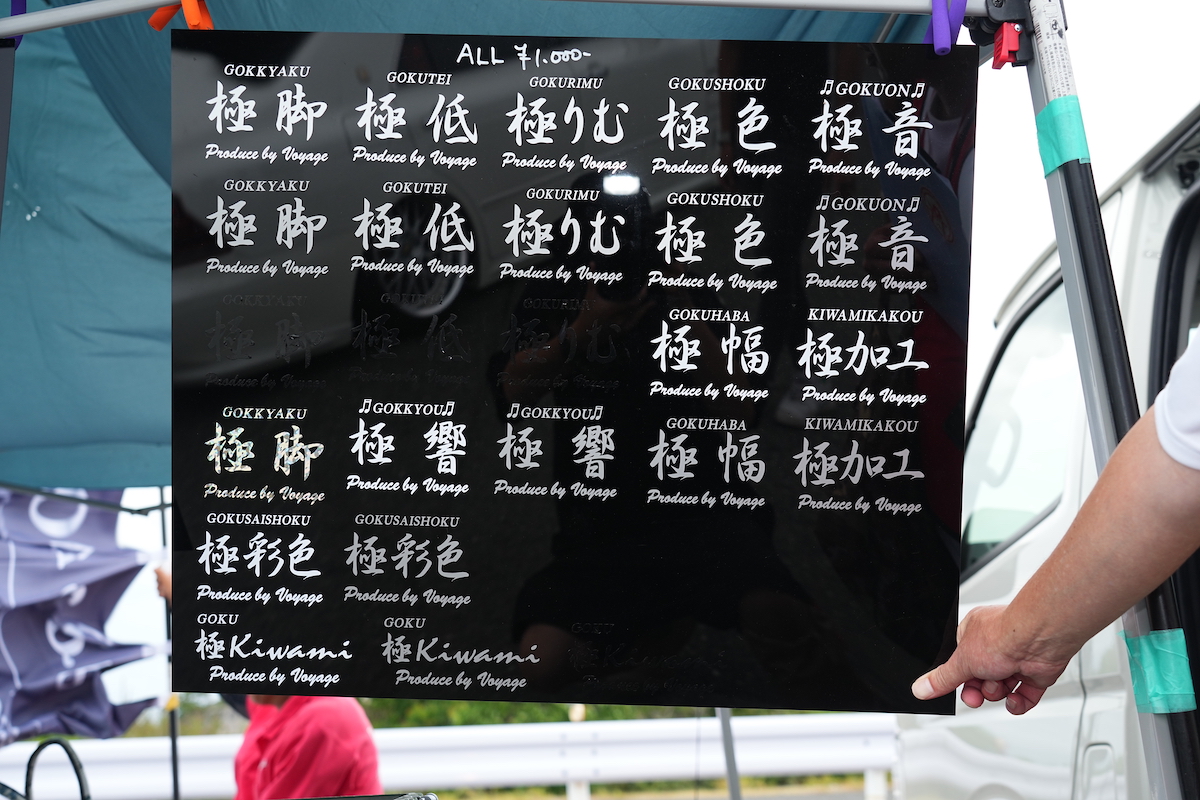 ALL ¥1.000-
GOKKYAKU
極 脚
Produce by Voyage
GOKUTEI
極 低
Produce by Voyage
GOKURIMU
極りむ
Produce by Voyage
GOKUSHOKU
極 色
Produce by Voyage
♫GOKUON♫
極 音
Produce by Voyage
GOKKYAKU
極 脚
Produce by Voyage
GOKUTEI
極 低
Produce by Voyage
GOKURIMU
極りむ
Produce by Voyage
GOKUSHOKU
極 色
Produce by Voyage
♫GOKUON♫
極 音
Produce by Voyage
GOKKYAKU
極 脚
Produce by Voyage
GOKUTEI
極 低
Produce by Voyage
GOKURIMU
極りむ
Produce by Voyage
GOKUHABA
極 幅
Produce by Voyage
KIWAMIKAKOU
極加工
Produce by Voyage
GOKKYAKU
極 脚
Produce by Voyage
♫GOKKYOU♫
極 響
Produce by Voyage
♫GOKKYOU♫
極 響
Produce by Voyage
GOKUHABA
極 幅
Produce by Voyage
KIWAMIKAKOU
極加工
Produce by Voyage
GOKUSAISHOKU
極彩色
Produce by Voyage
GOKUSAISHOKU
極彩色
Produce by Voyage
GOKU
極Kiwami
Produce by Voyage
GOKU
極Kiwami
Produce by Voyage
GOKU
極Kiwami
Produce by Voyage